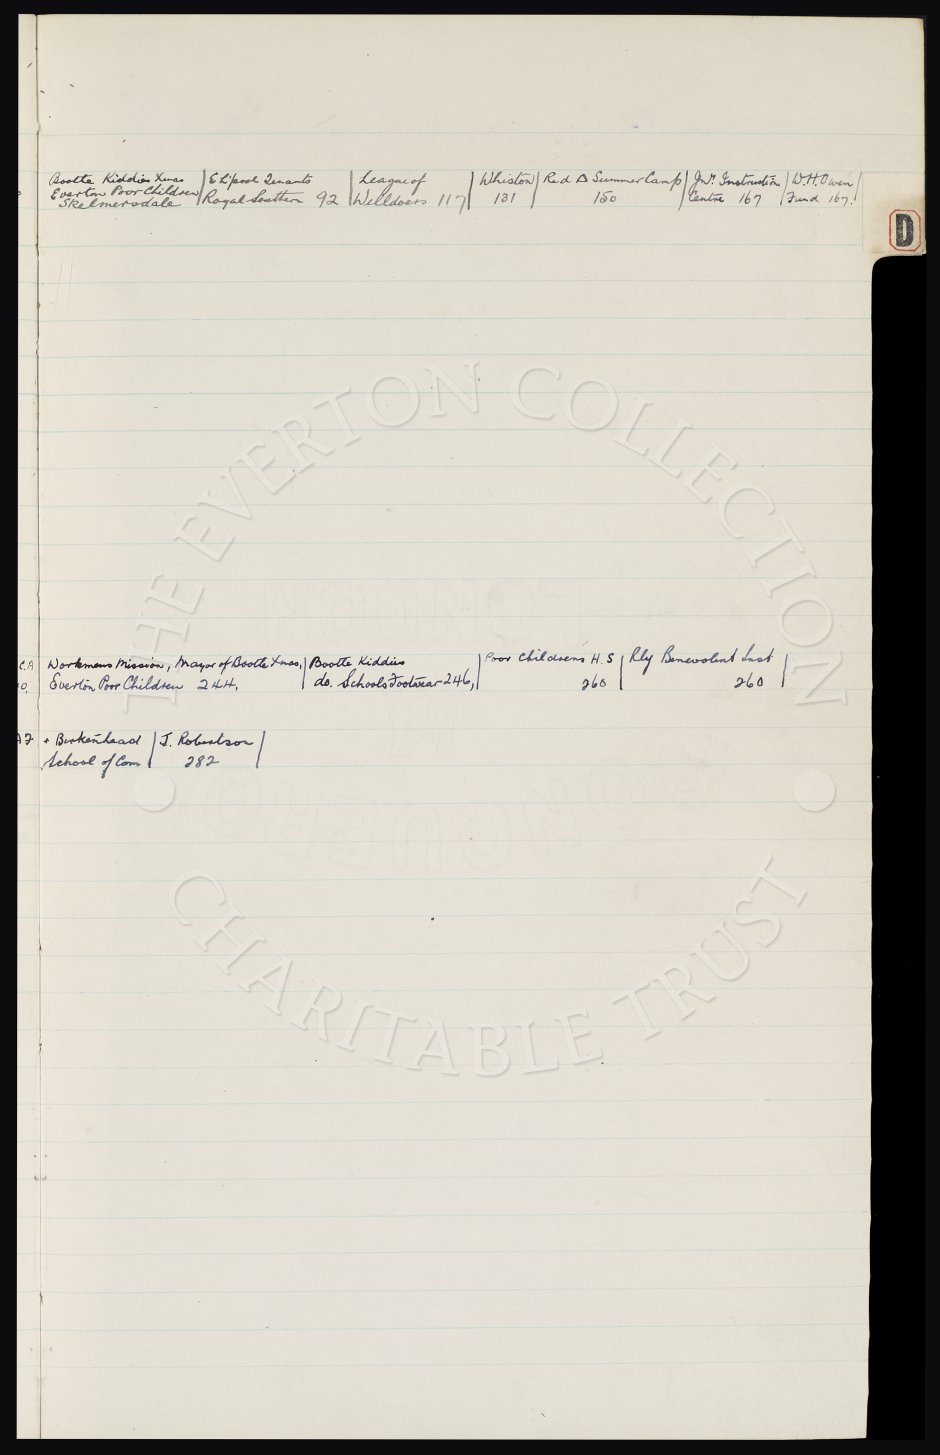 Bootle Kiddies Xmas | E L'pool Tenants | League of | Whiston | Red Δ Summer Camp | Jnr. Instruction | W. H. Owen |
Everton Poor Children | Royal Southern 92 | Welldoers 117 | 131 | 150 | Centre 167 | Fund 167. |
Skelmersdale
D
C.A Workmens Mission, Mayor of Bootle Xmas, | Bootle Kiddies | Poor Childrens H. S | Rly Benevolent Inst |
Everton Poor Children 244, | do. Schools Footwear 246, | 260 | 260 |
+ Birkenhead | J. Robertson |
School of Com | 282 |
THE EVERTON COLLECTION
CHARITABLE TRUST